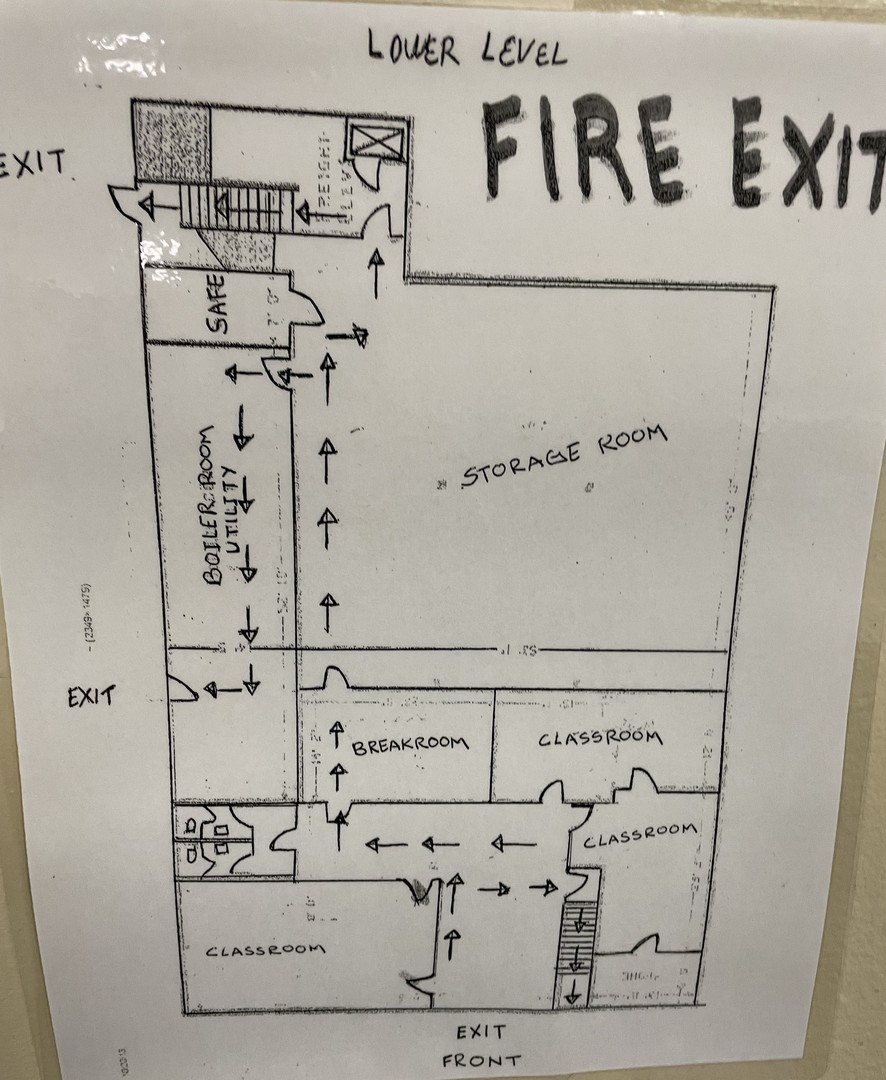 LOWER LEVEL
FIRE EXIT
EXIT
FREIGHT
ELEV
SAFE
STORAGE ROOM
BOILER ROOM
UTILITY
- (2349x1479)
EXIT
BREAKROOM
CLASSROOM
CLASSROOM
CLASSROOM
EXIT
FRONT